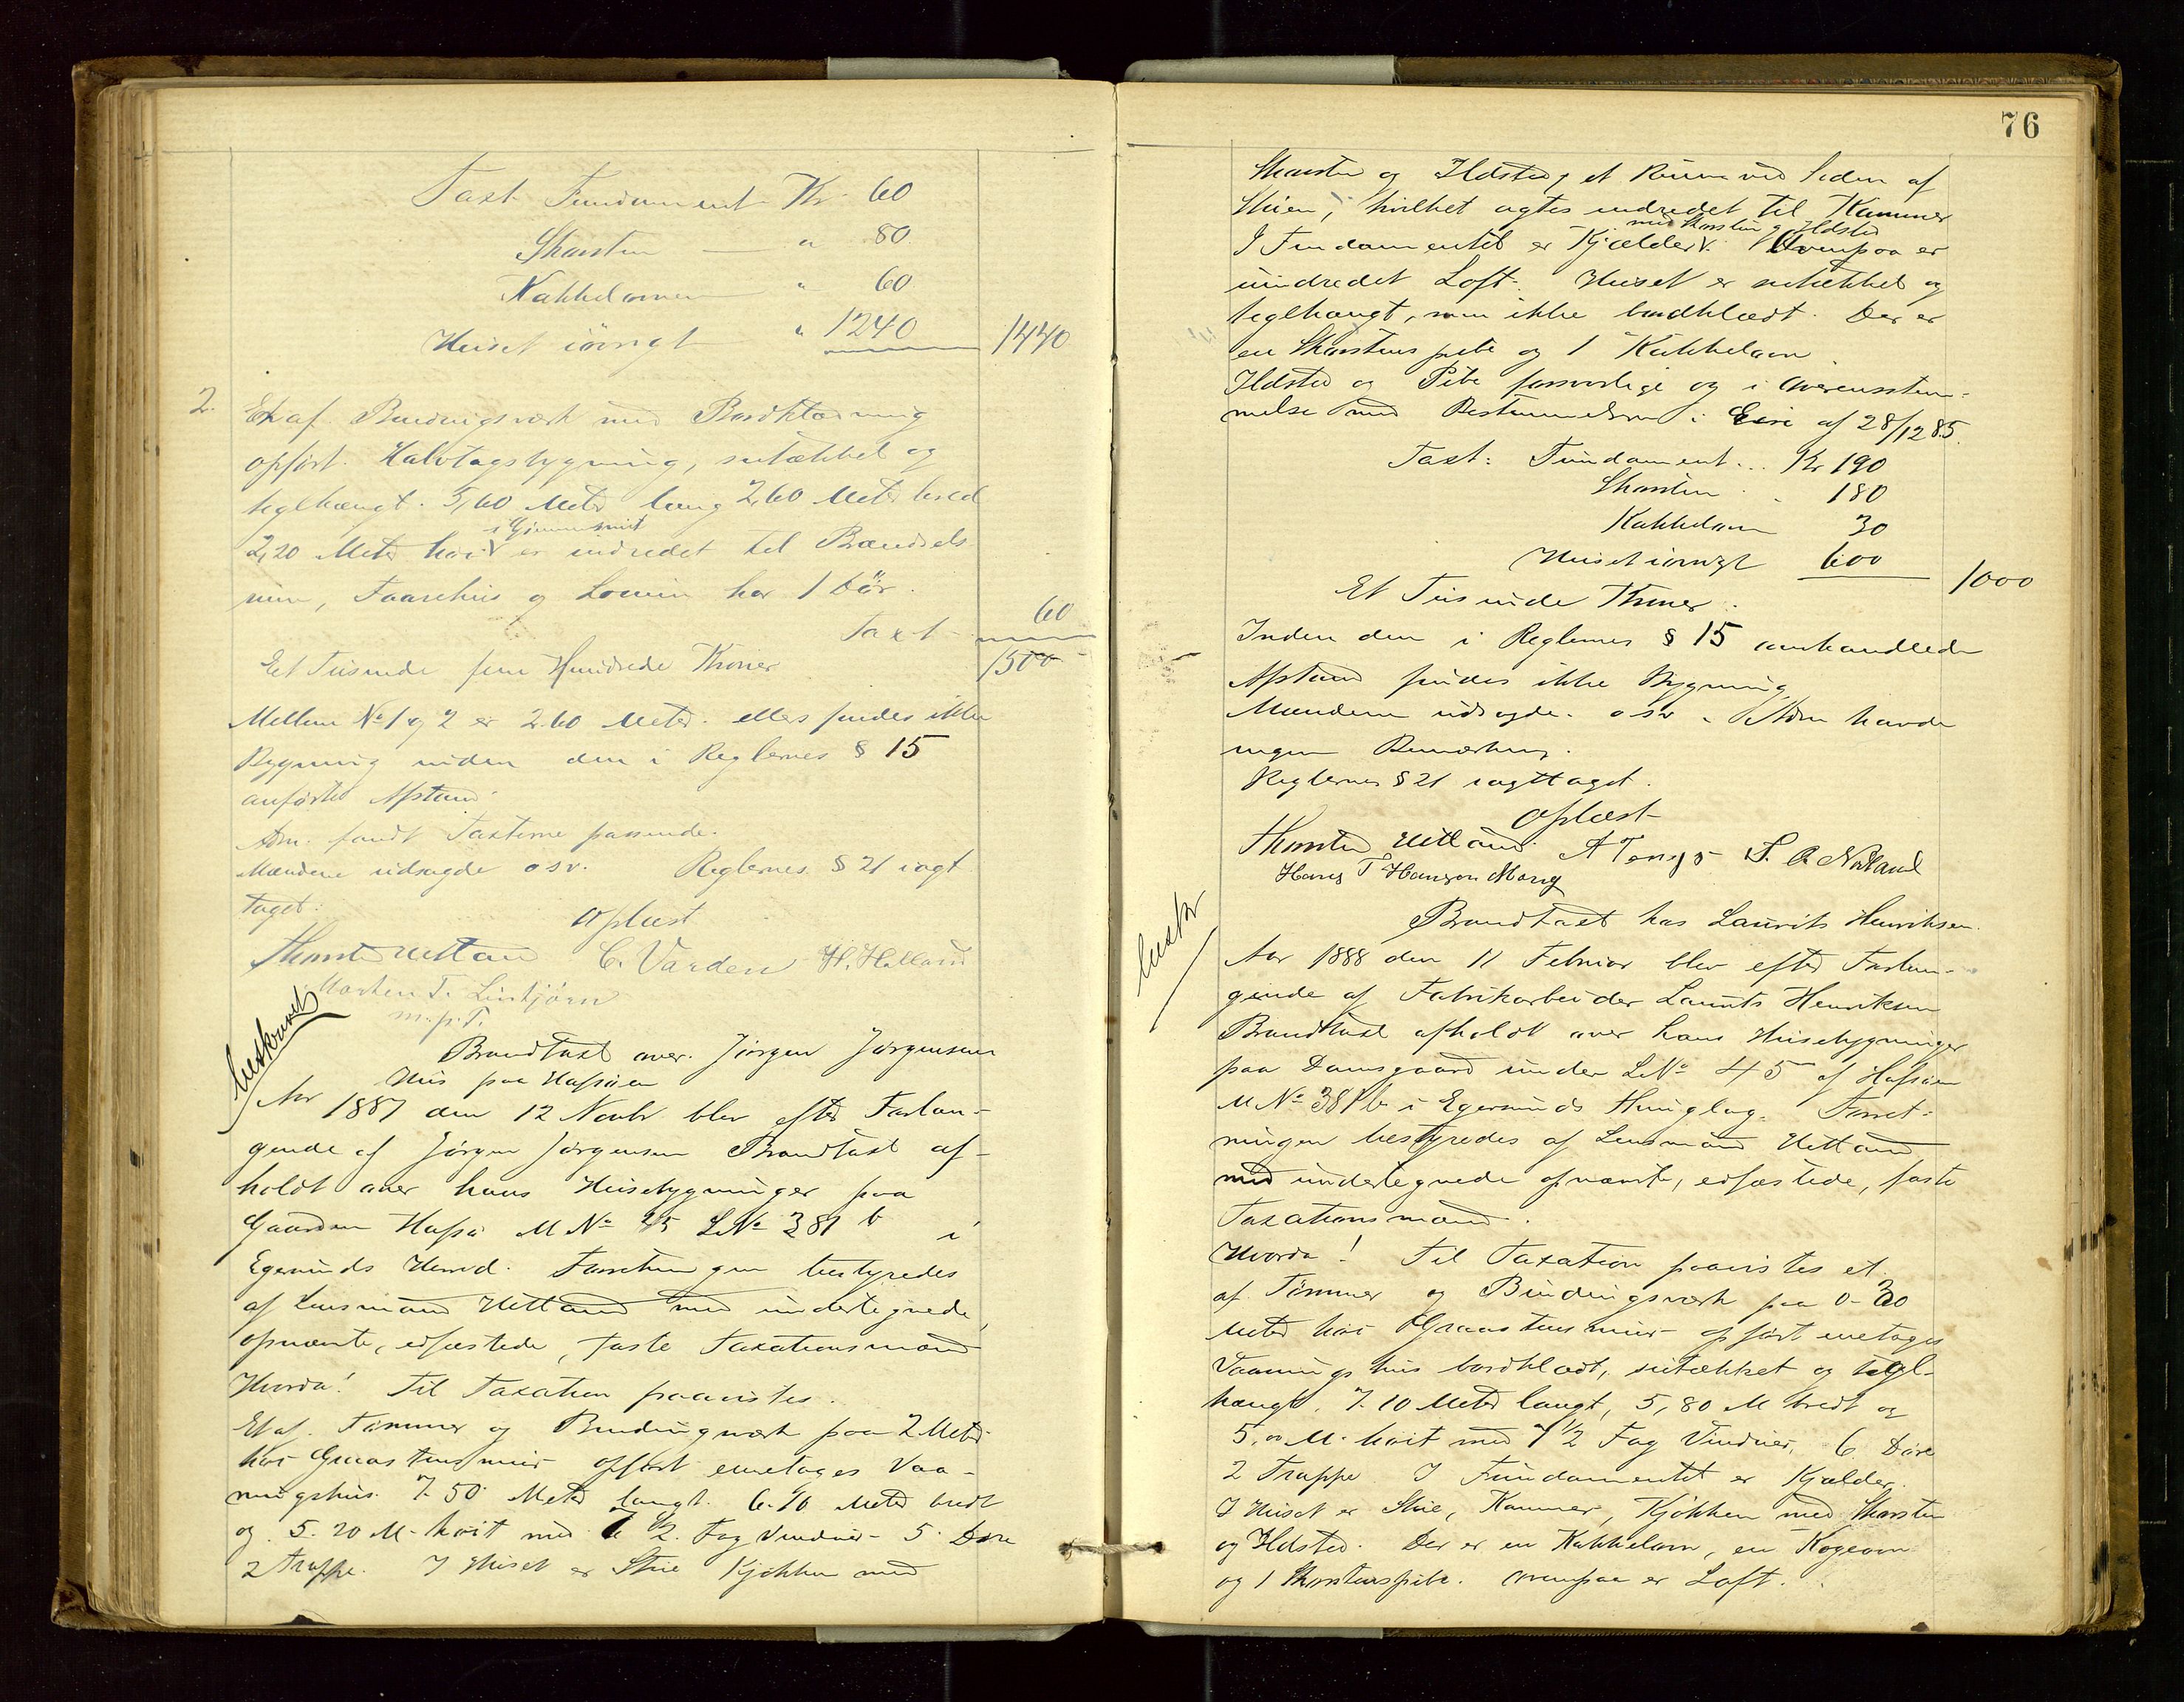 Taxt Fundament Kr. 60
Skorsten — " 80
Kakkelovne " 60
Huset iøvrigt " 1240 1440
2. En af Bindingsværk med Bordklædning
opført Halvtagsbygning, sutækket og
teglhængt. 5,60 Meter lang 2,60 Meter bred
i Gjennemsnit
2,20 Meter høi er indredet til Brændsels
rum, Faarehus og Lovin har 1 Dør.
Taxt 60
Et Tusinde fem Hundrede Kroner 1500
Mellem No 1 og 2 er 2.60 Meter. ellers findes ikke
Bygning inden den i Reglernes § 15
anførte Afstand.
Adm. fandt Taxterne passende.
Mændene udsagde osv. Reglernes § 21 iagt
taget:
Oplæst
Thorsten Uetland C. Varden H. Halland
Morten T. Lintjørn
m. p. P.
beskrevet
Brandtaxt over Jørgen Jørgensens
Hus paa Hafsøen
Aar 1887 den 12 Novbr blev efter Forlan-
gende af Jørgen Jørgensen Brandtaxt af-
holdt over hans Husebygninger paa
Gaarden Hafsø M No 45 L No 381 b i
Egersunds Herred. Forretningen bestyredes
af Lensmand Uetland med undertegnede,
opnævnte, edfæstede, faste Taxationsmænd
Hvorda! Til Taxation paavistes.
Et af Tømmer og Bindingværk paa 2 Meter
høi Graastensmur opført eenetages Vaa-
ningshus 7.50 Meter langt. 6.70 Meter bredt
og 5.20 M. høit med 1/2 Fag Vinduer 5 Døre
2 Trappe. I Huset er Stue Kjøkken med
76
Skorsten og Ildsted, et Rum ved Siden af
Stuen, hvilket agtes indredet til Kammer
med Skorsten og Ildsted
I Fundamentet er Kjælder. Ovenpaa er
uindredet Loft. Huset er sutækket og
teglhængt, men ikke bordklædt. Der er
en Skorstenspibe og 1 Kakkelovn.
Ildsted og Pibe forsvarlige og i Overensstem-
melse med Bestemmelserne i Circ af 28/12 85.
Taxt: Fundament .. Kr 190
Skorsten " 180
Kakkelovn 30
Huset iøvrigt 600 1000
Et Tusinde Kroner.
Inden den i Reglernes § 15 omhandlede
Afstand findes ikke Bygning
Mændene udsagde osv. Adm havde
ingen Bemærkning.
Reglernes § 21 iagttaget.
Oplæst
Thorsten Uetland. A Tengs S. A. Nodland
Hans T Hanson Mong
beskr
Brandtaxt hos Laurits Henriksen.
Aar 1888 den 11 Februar blev efter Forlan-
gende af Fabrikarbeider Laurits Henriksen
Brandtaxt afholdt over hans Husebygninger
paa Damsgaard under L No 45 af Hafsøen
M No 381 b i Egersunds Thinglag. Forret-
ningen bestyredes af Lensmand Uetland
med undertegnede opnævnte, edfæstede, faste
Taxationsmænd.
Hvorda! Til Taxation paavistes et
af Tømmer og Bindingsværk paa 0-30
Meter høi Graastensmur opført eenetages
Vaaningshus bordklædt, sutækket og tegl-
hængt, 7.10 Meter langt, 5,80 M bredt og
5,00 M. høit med 7 1/2 Fag Vinduer, 6 Døre
2 Trappe. I Fundamentet er Kjælder.
I Huset er Stue, Kammer, Kjøkken med Skorsten
og Ildsted. Der er en Kakkelovn, en Kogeovn
og 1 Skorstenspibe. Ovenpaa er Loft.